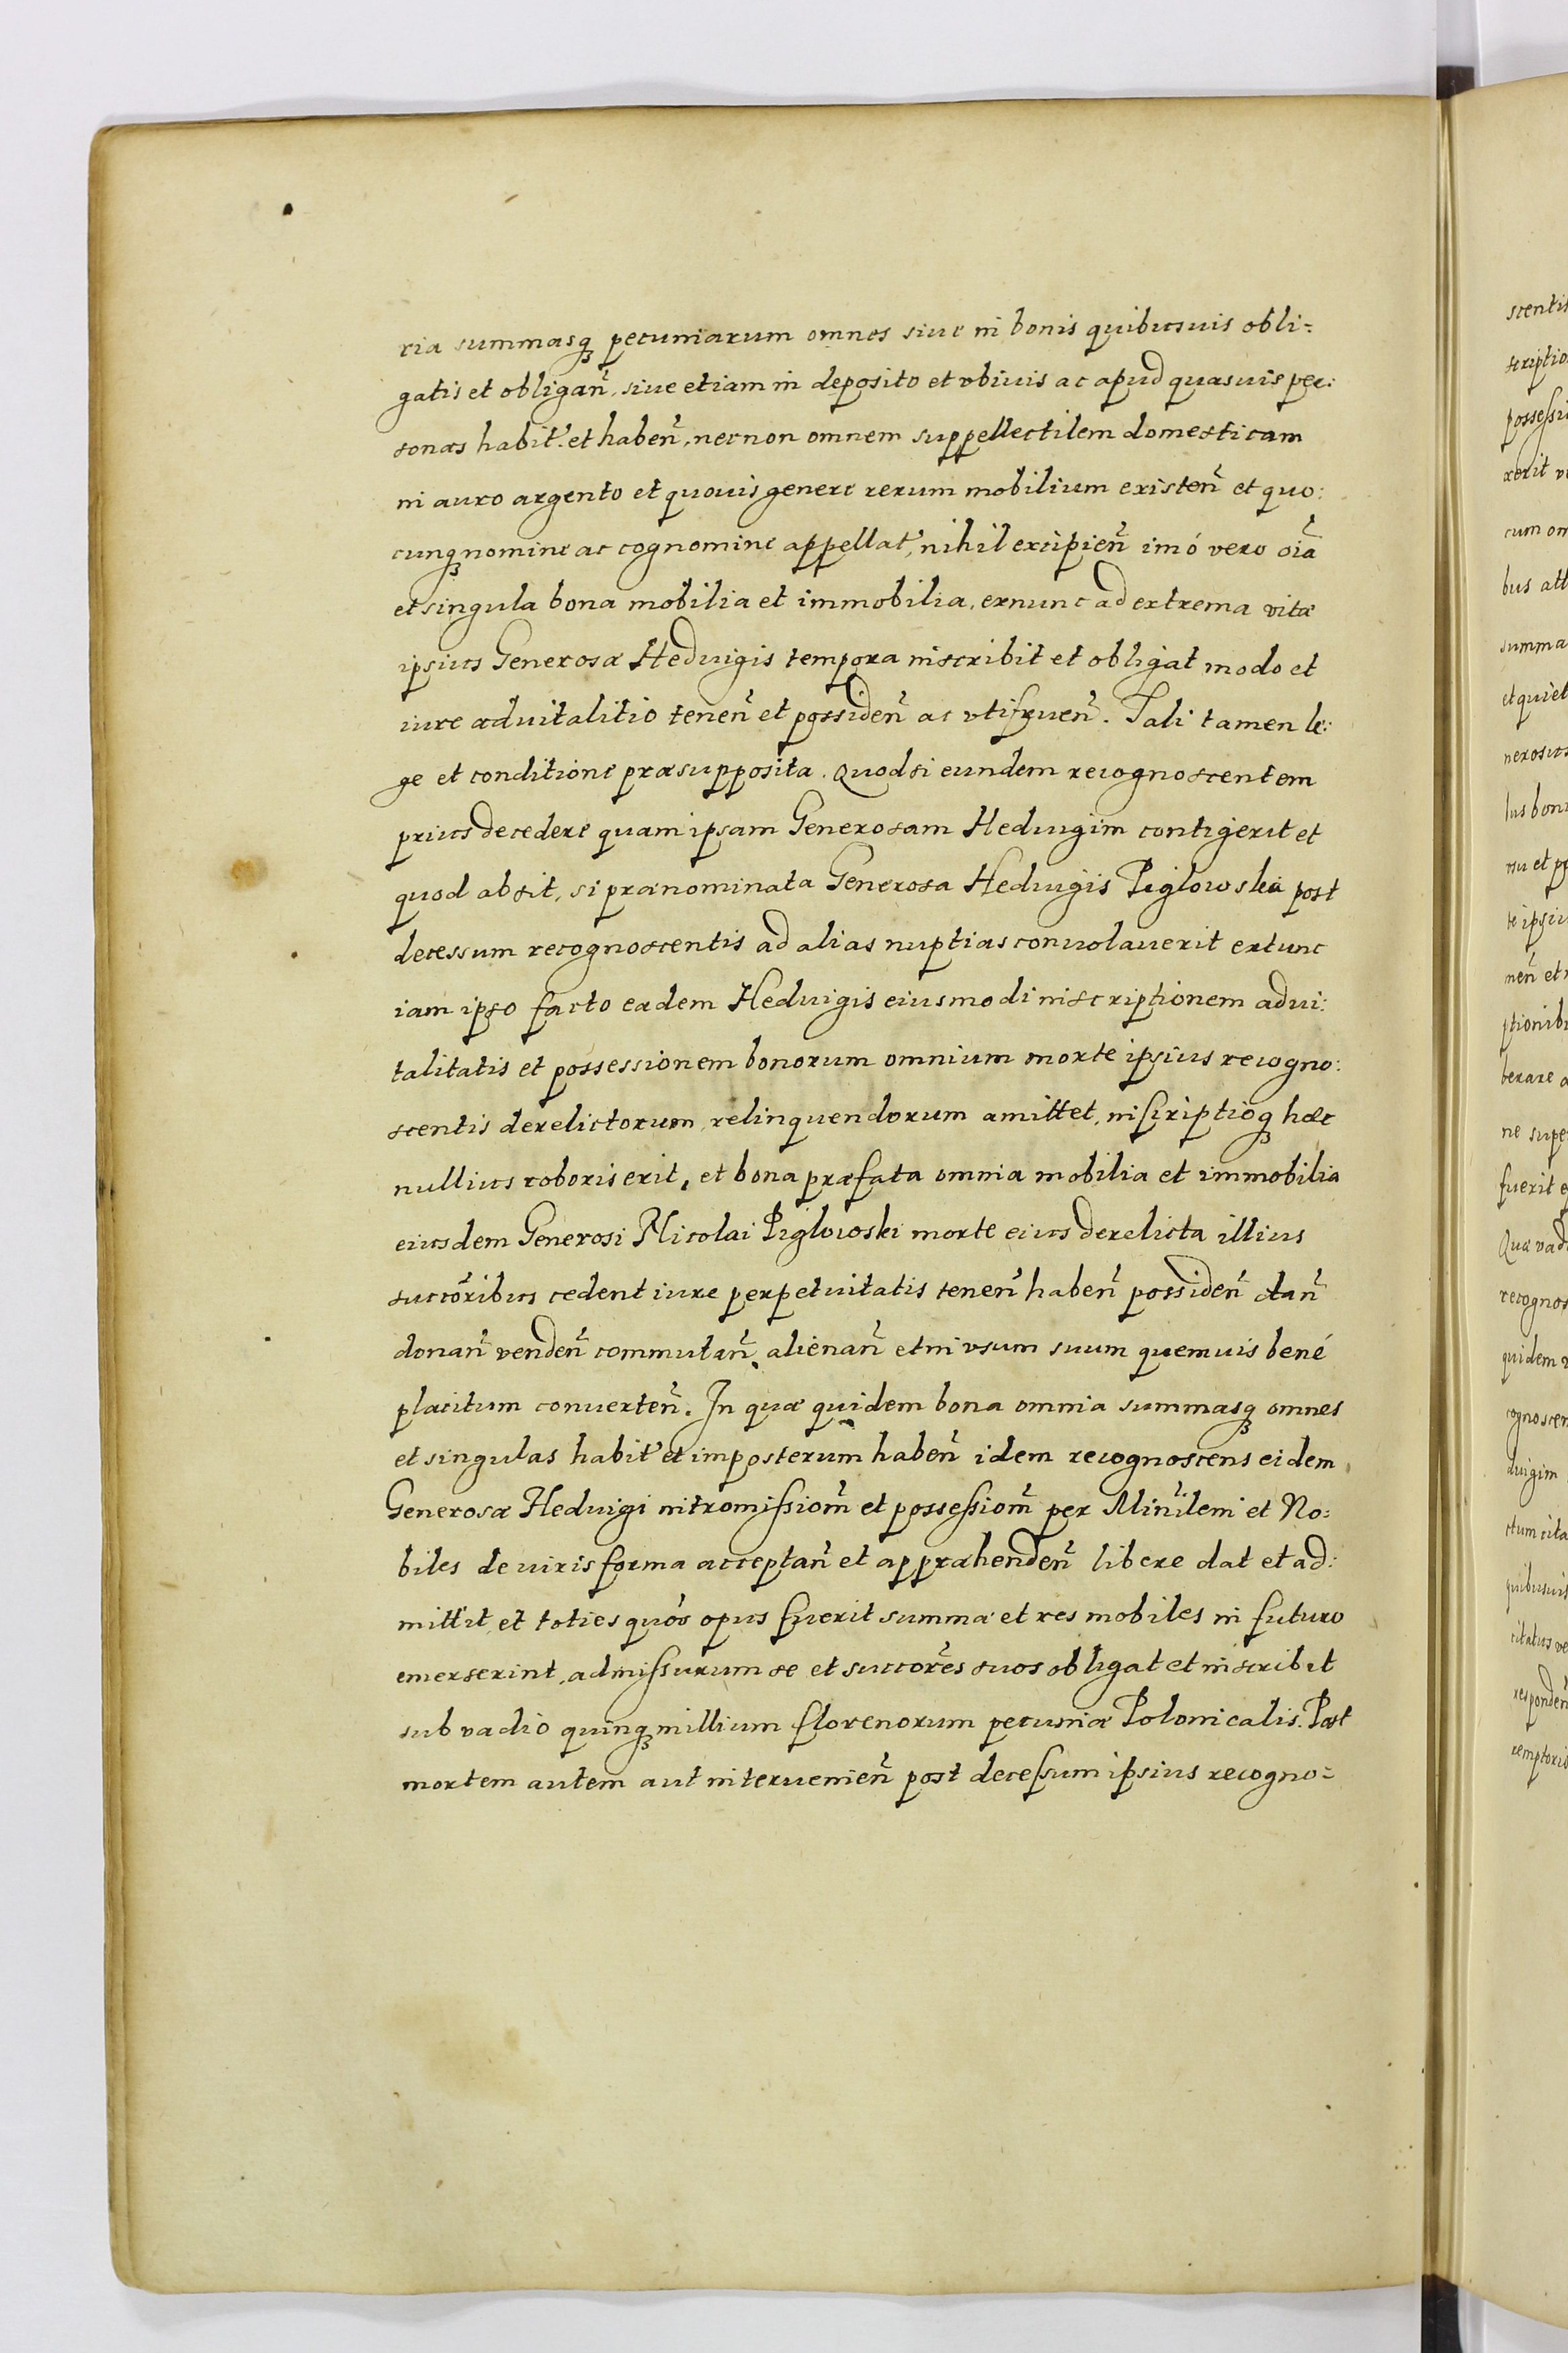 ria summasq꜍ pecuniarum omnes siue in bonis quibusuis obli=
gatis et obligan̄, siue etiam in deposito et vbiuis ac apud quasuis per:
sonas habit. et haben̄, necnon omnem suppellectilem domesticam
in auro argento et quouis genere rerum mobilium existen̄ et quo:
cunq꜍ nomine ac cognomine appellat, nihil excipien̄ imó vero oīa
et singula bona mobilia et immobilia, exnunc ad extrema vitæ
ipsius Generosæ Heduigis tempora inscribit et obligat modo et
iure aduitalitio tenen̄ et possiden̄ ac vtifruen̄. Tali tamen le:
ge et conditione præsupposita. Quod si eundem recognoscentem
prius decedere quam ipsam Generosam Heduigim contigerit et
quod absit, si prænominata Generosa Heduigis Piglowska post
decessum recognoscentis ad alias nuptias conuolauerit extunc
iam ipso facto eadem Heduigis eiusmodi inscriptionem adui:
talitatis et possessionem bonorum omnium morte ipsius recogno:
scentis derelictorum, relinquendorum amittet, inscriptioq꜍ hæc
nullius roboris erit, et bona præfata omnia mobilia et immobilia
eiusdem Generosi Nicolai Piglowski morte eius derelicta illius
succōribus cedent iure perpetuitatis tenen̄ haben̄ possiden̄ dan̄
donan̄ venden̄ commutan̄, alienan̄ et in vsum suum quemuis bené
placitum conuerten̄. In quæ quidem bona omnia summasq꜍ omnes
et singulas habit et imposterum haben̄ idem recognoscens eidem
Generosæ Heduigi intromissiom̄ et possessiom̄ per Min̄ilem et No:
biles de iuris forma acceptan̄ et appræhenden̄ libere dat et ad:
mittit, et toties quōs opus fuerit summæ et res mobiles in futuro
emerserint, admissurum se et succores̄ suos obligat et inscribit
sub vadio quinq꜍ millium florenorum pecuniæ Polonicalis. Post
mortem autem aut interuenien̄ post decessum ipsius recogno=
scentis
scriptio
possessi
xerit v
cum om
bus att
summa
et quiet
nerosus
lus bon
su et p
te ipsiu
nen̄ et
ptionib
berare a
ne supe
fuerit e
Quæ vad
recognos
quidem
cognoscen
duigim
ctum cita
quibusuis
citatus ve
responden̄
remptorie